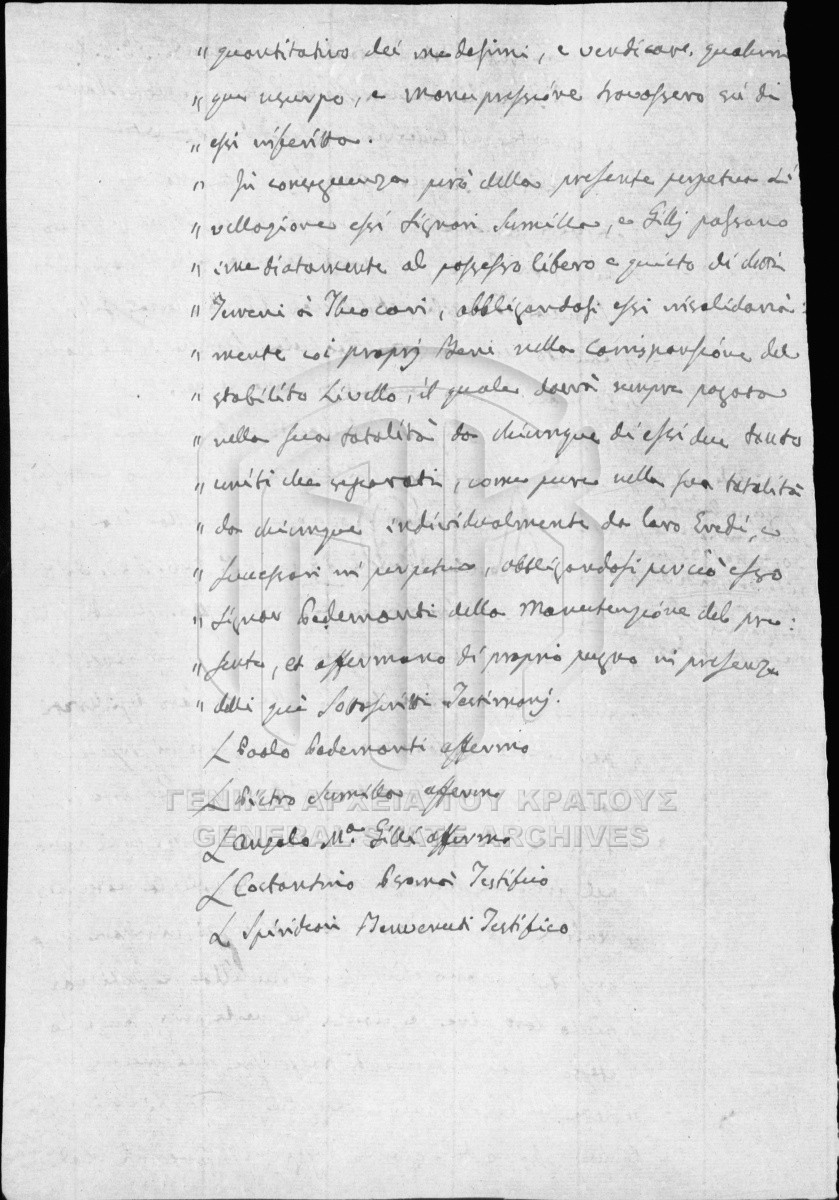 " quantitativo dei medesimi, e vendicare qualunn
" que usurpo, e manupressione trovassero sù di
" essi inferitta.
" In conseguenza però della presente perpetua Li
" vellazione essi Signori Sumilla, e Gillj passano
" imediatamente al possesso libero e quieto di detti
" Terreni à Theocari, obbligandosi essi insolidaria:
" mente coi proprj Beni nella corrisponsione del
" stabilito Livello, il quale dovrà sempre pagarsi
" nella sua totalità da chiunque di essi due tanto
" uniti che separati, come pure nella sua totalità
" da chiunque individualmente da loro Eredi, e
" successori in perpetuo, obbligandosi perciò esso
" Signor Pademonti della Manutenzione del pre:
" sente, et affermano di proprio pugno in presenza
" delli quì Sottoscritti Testimonj.
L Paolo Pademonti affermo
L Pietro Sumilla affermo
L Angelo M.ª Gilli affermo
L Costantino Psomà Testifico
L Spiridion Benvenuti Testifico
ΓΕΝΙΚΑ ΑΡΧΕΙΑ ΤΟΥ ΚΡΑΤΟΥΣ
GENERAL STATE ARCHIVES